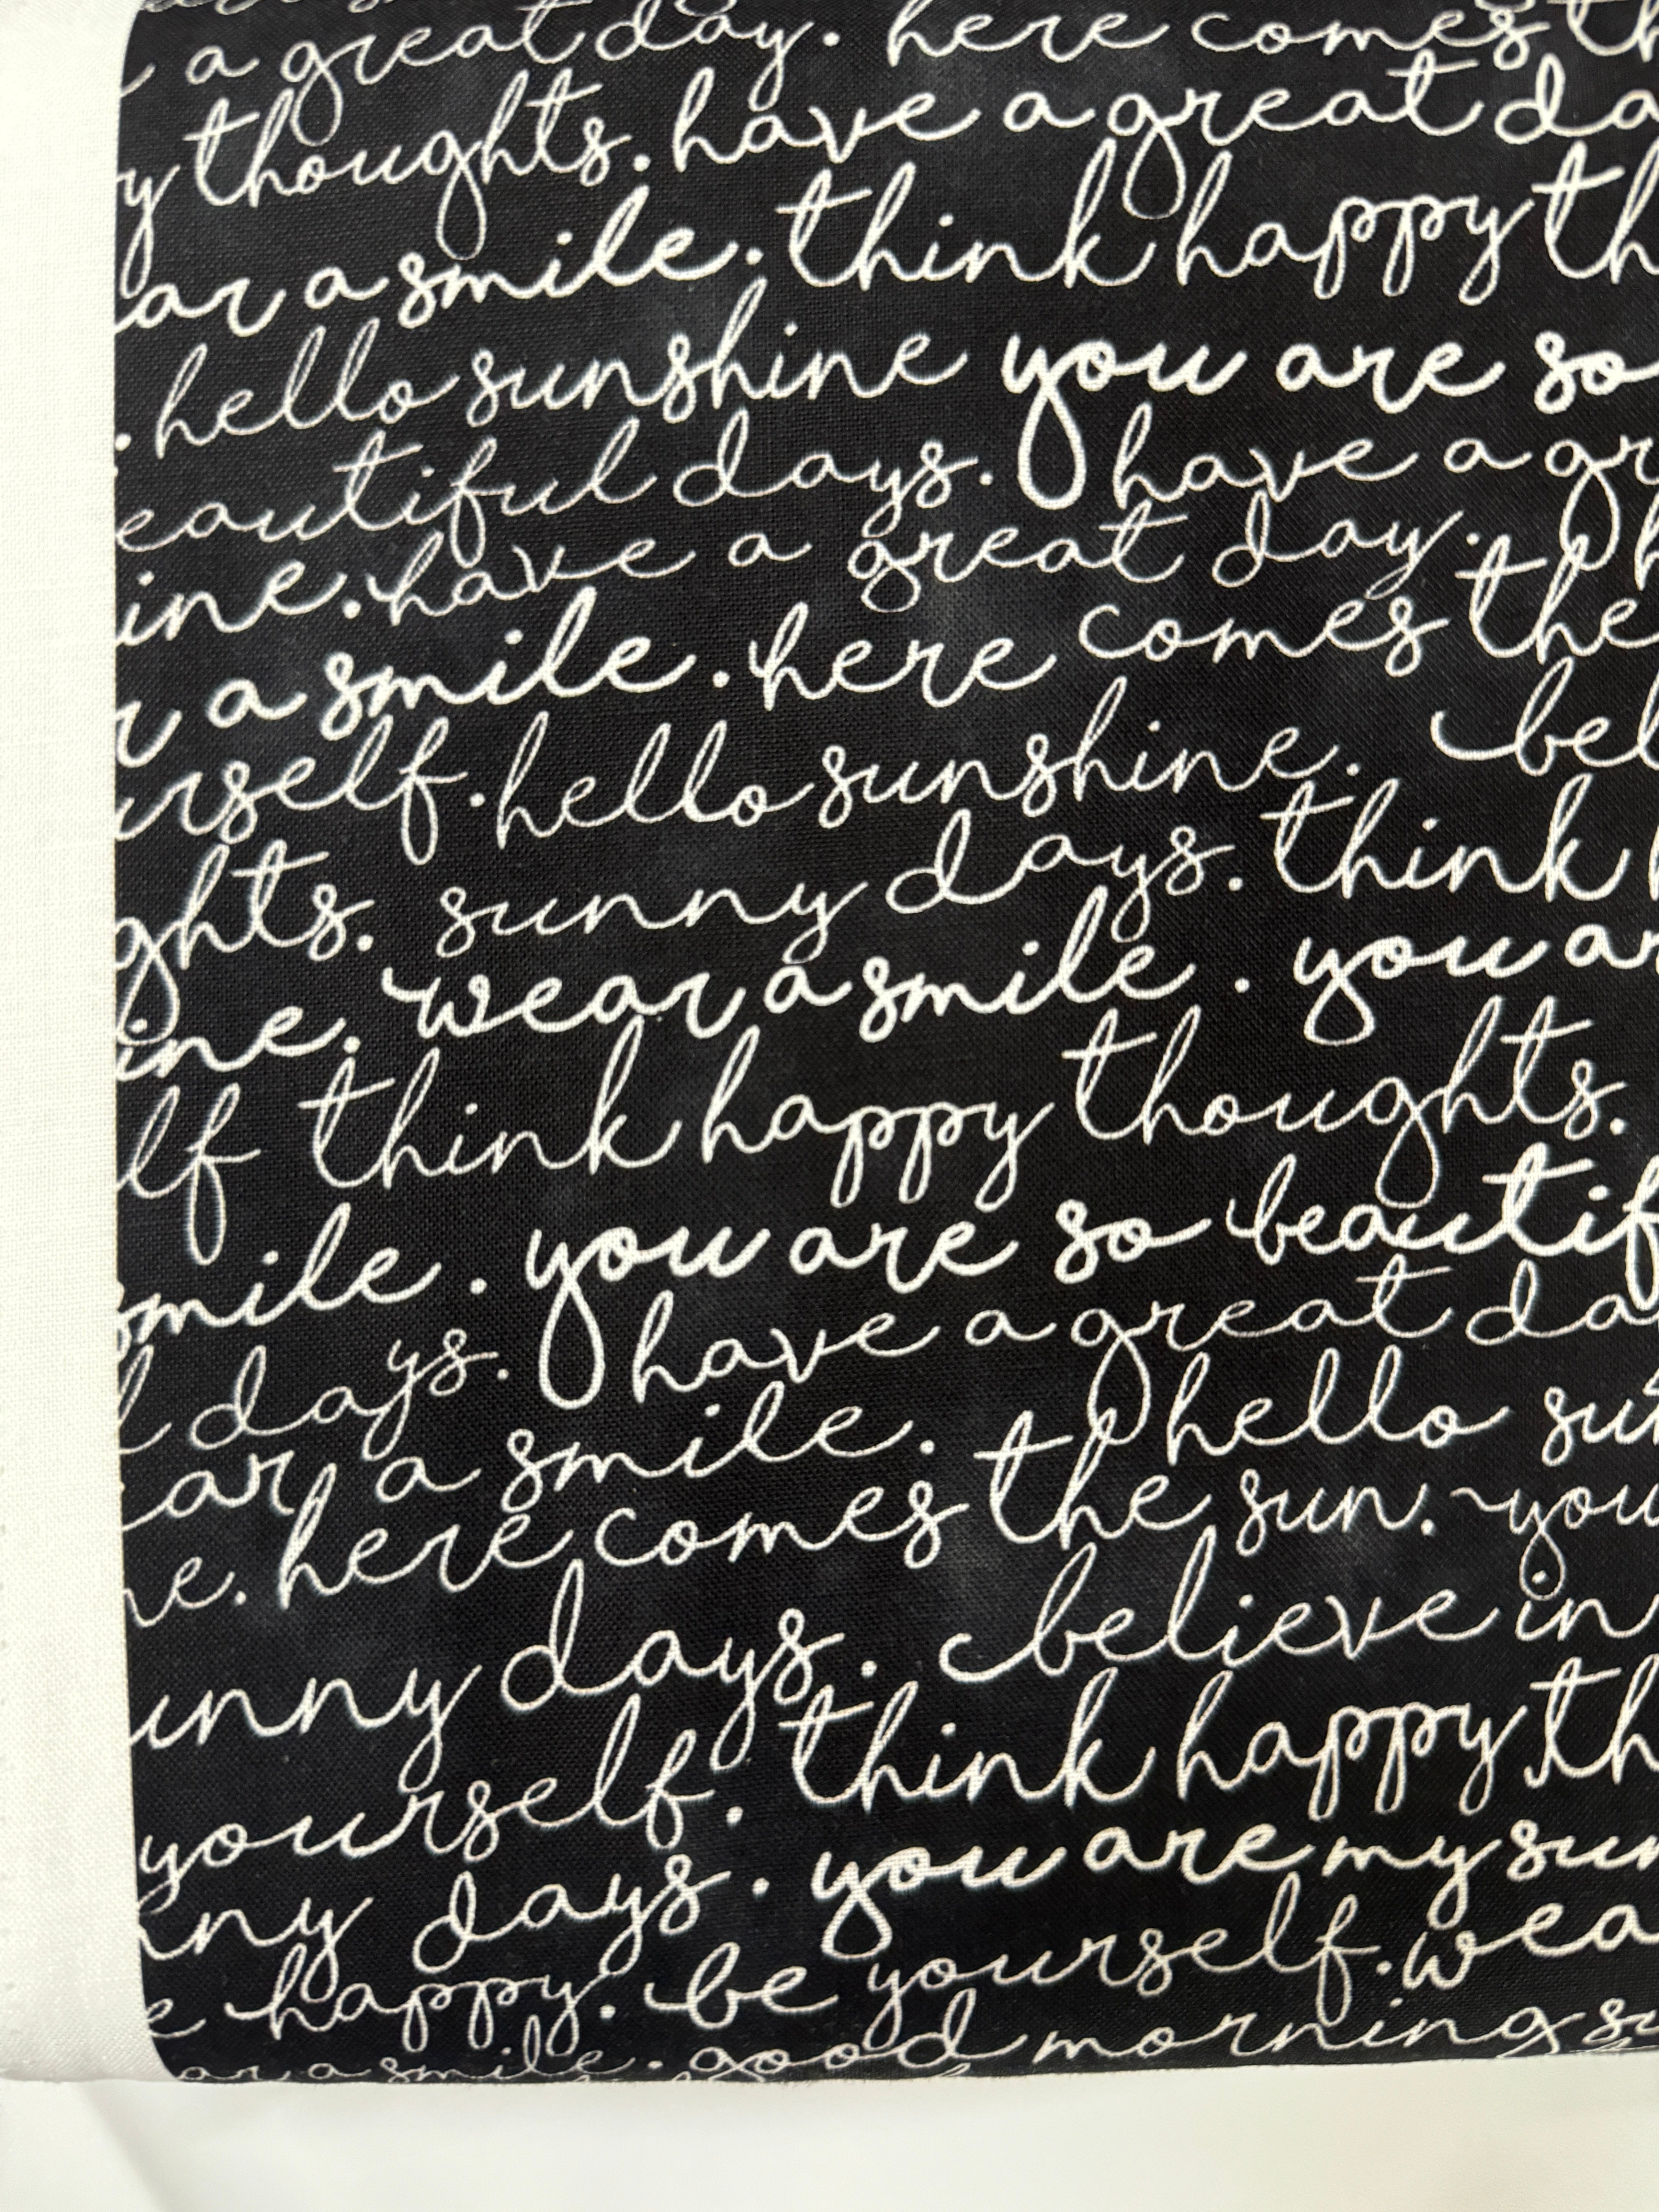 a great day. here comes th
y thoughts. have a great da
ar a smile. think happy th
. hello sunshine you are so
eautiful days. have a gr
ine. have a great day. h
r a smile. here comes the
urself. hello sunshine. bel
ghts. sunny days. think h
ine. wear a smile. you ar
lf think happy thoughts.
smile. you are so beautif
l days. have a great da
ar a smile. hello sun
ne. here comes the sun. you
unny days. believe in
yourself. think happy th
nny days. you are my sun
e happy. be yourself. wea
ar a smile. good morning su